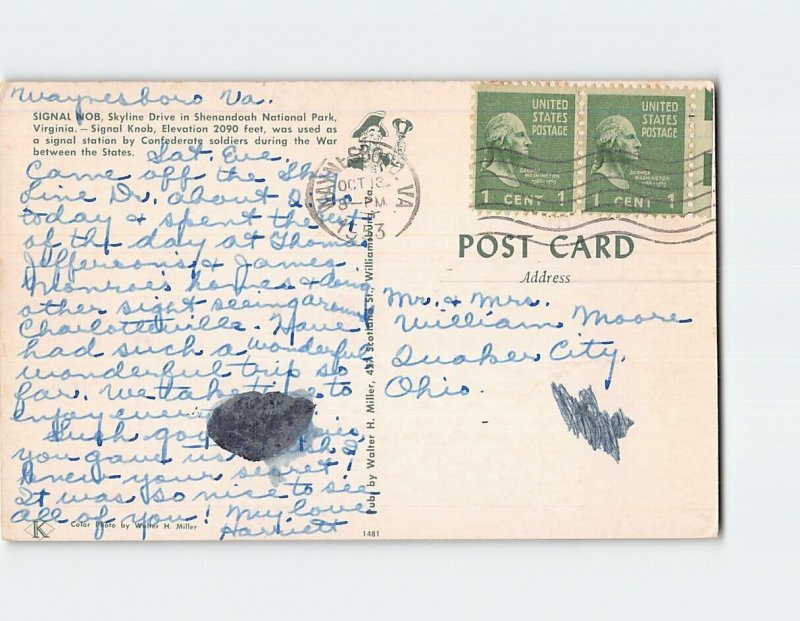 Waynesboro Va.
SIGNAL NOB, Skyline Drive in Shenandoah National Park,
Virginia. — Signal Knob, Elevation 2090 feet, was used as
a signal station by Confederate soldiers during the War
between the States.
Sat. Eve.
Came off the
Line Dr. about
today & spent the rest
of the day at Thomas
Jefferson's & James
Monroe's homes & doing
other sight seeing around
Charlottesville. Have
had such a wonderful
wonderful trip so
far. We take time to
enjoy
Such
you gave us
knew your secret!
It was so nice to see
all of you! My love
Harriett
K
Color Photo by Walter H. Miller
1481
Pub. by Walter H. Miller, 427 Scotland St., Williamsburg, Va.
WAYNESBORO, VA
OCT
8 - PM
1953
UNITED
STATES
POSTAGE
GEORGE
WASHINGTON
1 CENT 1
UNITED
STATES
POSTAGE
GEORGE
WASHINGTON
1 CENT 1
POST CARD
Address
Mr. & Mrs.
William Moore
Quaker City,
Ohio.